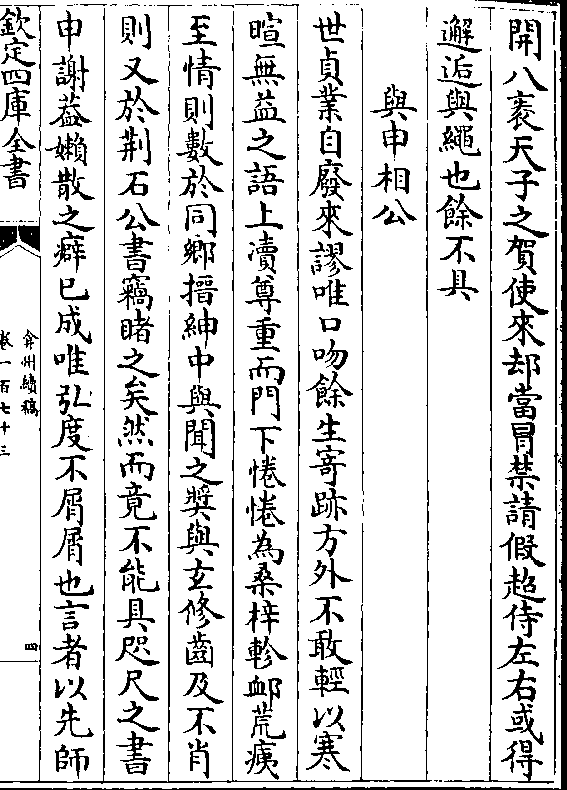 開八袠天子之賀使來却當冒禁請假趨侍左右或得
邂逅與繩也餘不具
與申相公
世貞業自廢來謬唯口吻餘生寄跡方外不敢輕以寒
暄無益之語上瀆尊重而門下惓惓為桑梓軫䘏荒痍
至情則數於同鄉搢紳中與聞之奬與玄修齒及不肖
則又於荆石公書竊睹之矣然而竟不能具咫尺之書
申謝葢嬾散之癖已成唯弘度不屑屑也言者以先師
欽定四庫全書
弇州續稿
卷一百七十三
四